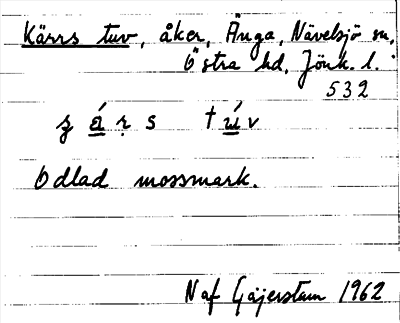 Kärrs tuv, åker, Änga, Nävelsjö sn,
Östra hd, Jönk. l.
532
ʒ á r̥ s t ú v
Odlad mossmark.
N af Gäjerstam 1962